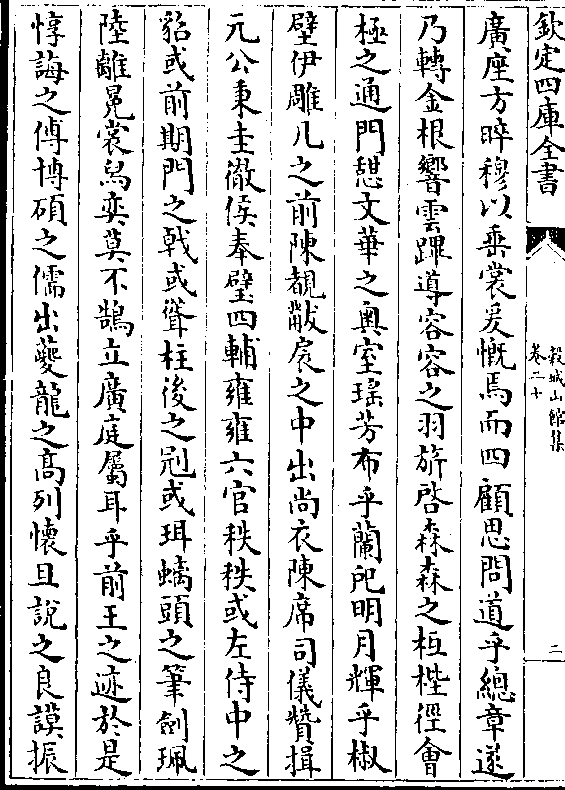 欽定四庫全書
穀城山館集
卷二十
二
廣座方晬穆以垂裳爰慨焉而四顧思問道乎總章遂
乃轉金根響雲蹕導容容之羽旂啓森森之柜梐徑會
極之通門憩文華之奥室瑤芳布乎蘭戺明月輝乎椒
壁伊雕几之前陳覩黻扆之中出尚衣陳席司儀贊揖
元公秉圭徹侯奉璧四輔雍雍六官秩秩或左侍中之
貂或前期門之㦸或聳柱後之冠或珥螭頭之筆劍珮
陸離冕裳舄奕莫不鵠立廣庭屬耳乎前王之迹於是
惇誨之傅博碩之儒出夔龍之髙列懷旦說之良謨振